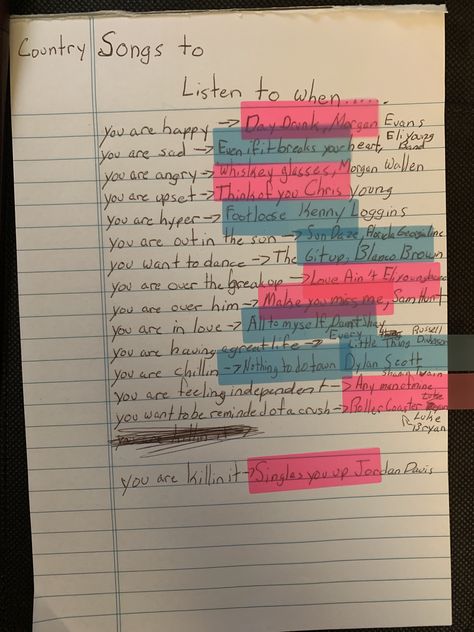 Country Songs to
Listen to when.....
you are happy → Day Drunk, Morgan Evans
you are sad → Even if it breaks your heart, Eli young Band
you are angry → whiskey glasses, Morgan Wallen
you are upset → Think of you Chris Young
you are hyper → Footloose Kenny Loggins
you are out in the sun → Sun Daze, Florida Georgia line
you want to dance → The Git up, Blanco Brown
you are over the breakup → Love Ain't Eli young band
you are over him → Make you miss me, Sam Hunt
you are in love → All to myself Dan + Shay
you are having a great life → Every Little Thing Russell Dickerson
you are chillin → Nothing to do town Dylan Scott
you are feeling independent → Any man of mine Shania Twain
you want to be reminded of a crush → Roller Coaster Luke Bryan
Luke Bryan
you are killin it → Singles you up Jordan Davis